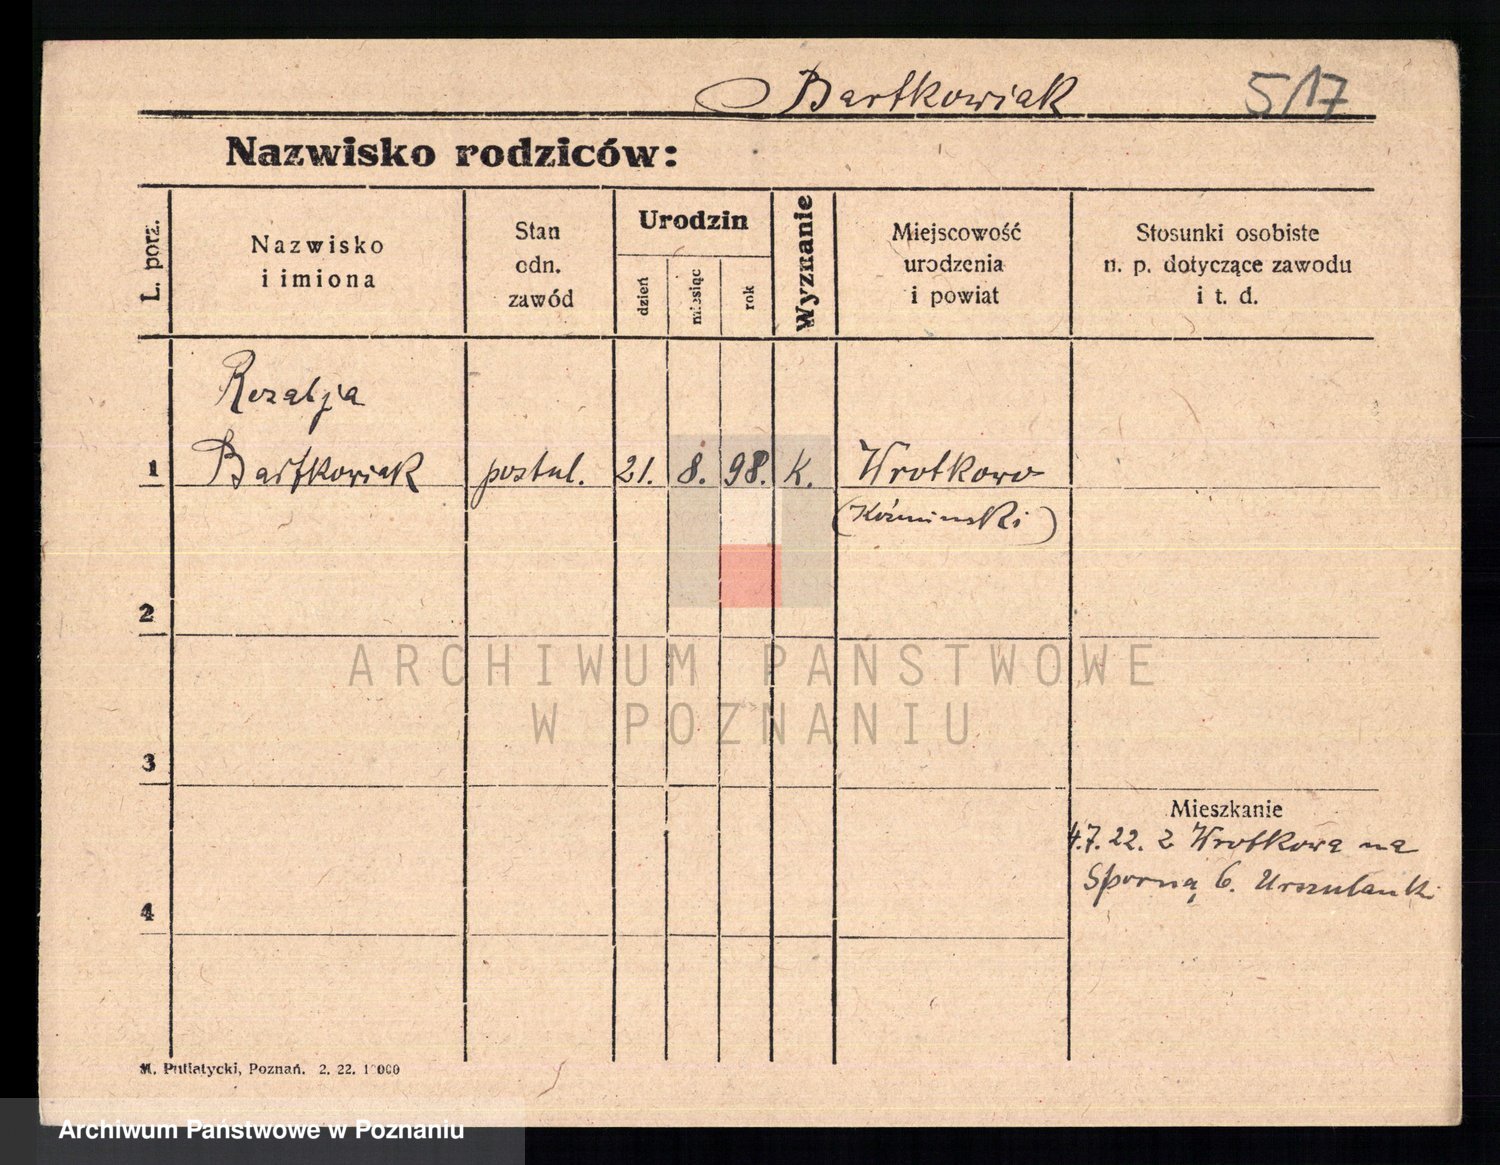 Bartkowiak 517
Nazwisko rodziców:
L. porz.
Nazwisko
i imiona
Stan
odn.
zawód
Urodzin
dzień
miesiąc
rok
Wyznanie
Miejscowość
urodzenia
i powiat
Stosunki osobiste
n. p. dotyczące zawodu
i t. d.
Rozalja
1 Bartkowiak postul. 21. 8. 98. K. Wrotkowo
(Koźminski)
2
ARCHIWUM PAŃSTWOWE
W POZNANIU
3
Mieszkanie
4.7.22. z Wrotkowa na
Sporną 6. Urszulanki
4
M. Putiatycki, Poznań. 2. 22. 10000
Archiwum Państwowe w Poznaniu